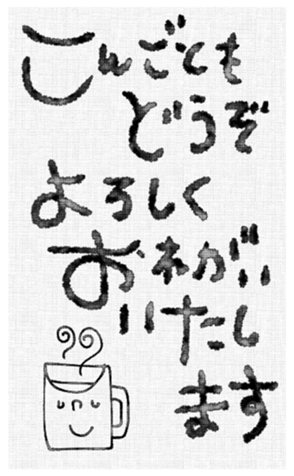 こんごとも
どうぞ
よろしく
おねがい
いたし
ます